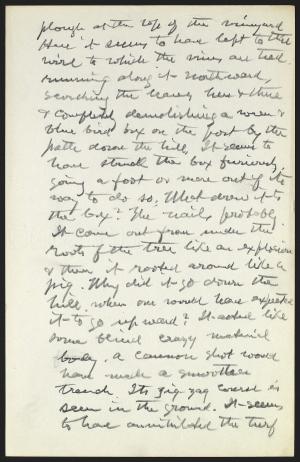 plough at the top of the vineyard
Here it seems to have left to the
wire to which the vines are tied
running along it northward,
scorching the leaves here & there
& completely demolishing a wren &
blue bird box on the post by the
path down the hill, It seems to
have struck the box furiously,
going a foot or more out of its
way to do so, What drew it to
the box? The nails, probably.
It came out from under the
roots of the tree like an explosion
& then it rooted around like a
pig. Why did it go down the
hill, when one would have expected
it to go upward? It acted like
some blind crazy material
body, a cannon shot would
have made a smoother
trench Its zig-zag course is
seen in the ground. It seems
to have annihilated the turf